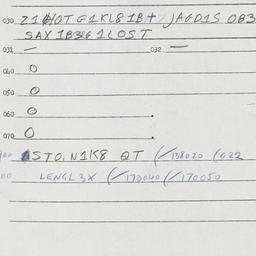 030 21 HOT G1KL81B+7 JAGD1S 0B3
SAX 1B3G 1LOST
031 — 032 —
040 0
050 0
060 0
070 0
STO. N1K8 QT (/138020 (022
LENGL3X (/170040 (/170050